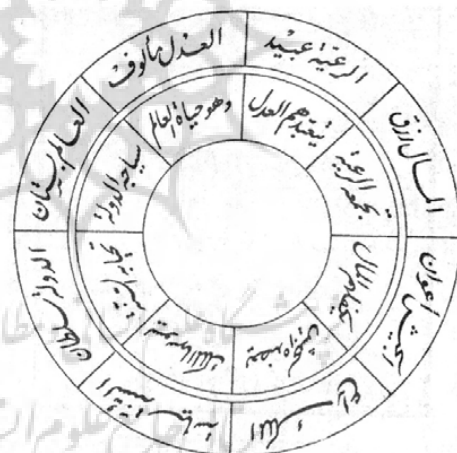 العالم بستان
سياجه الدولة
الدولة سلطان
تحيا به السنة
السنة سياسة
يسوسها الملك
الملك راع
يعضده الجيش
الجيش أعوان
يكفلهم المال
المال رزق
تجمعه الرعية
الرعية عبيد
يتعبدهم العدل
العدل مألوف
وهو حياة العالم
علوم انسانی
جامع علوم